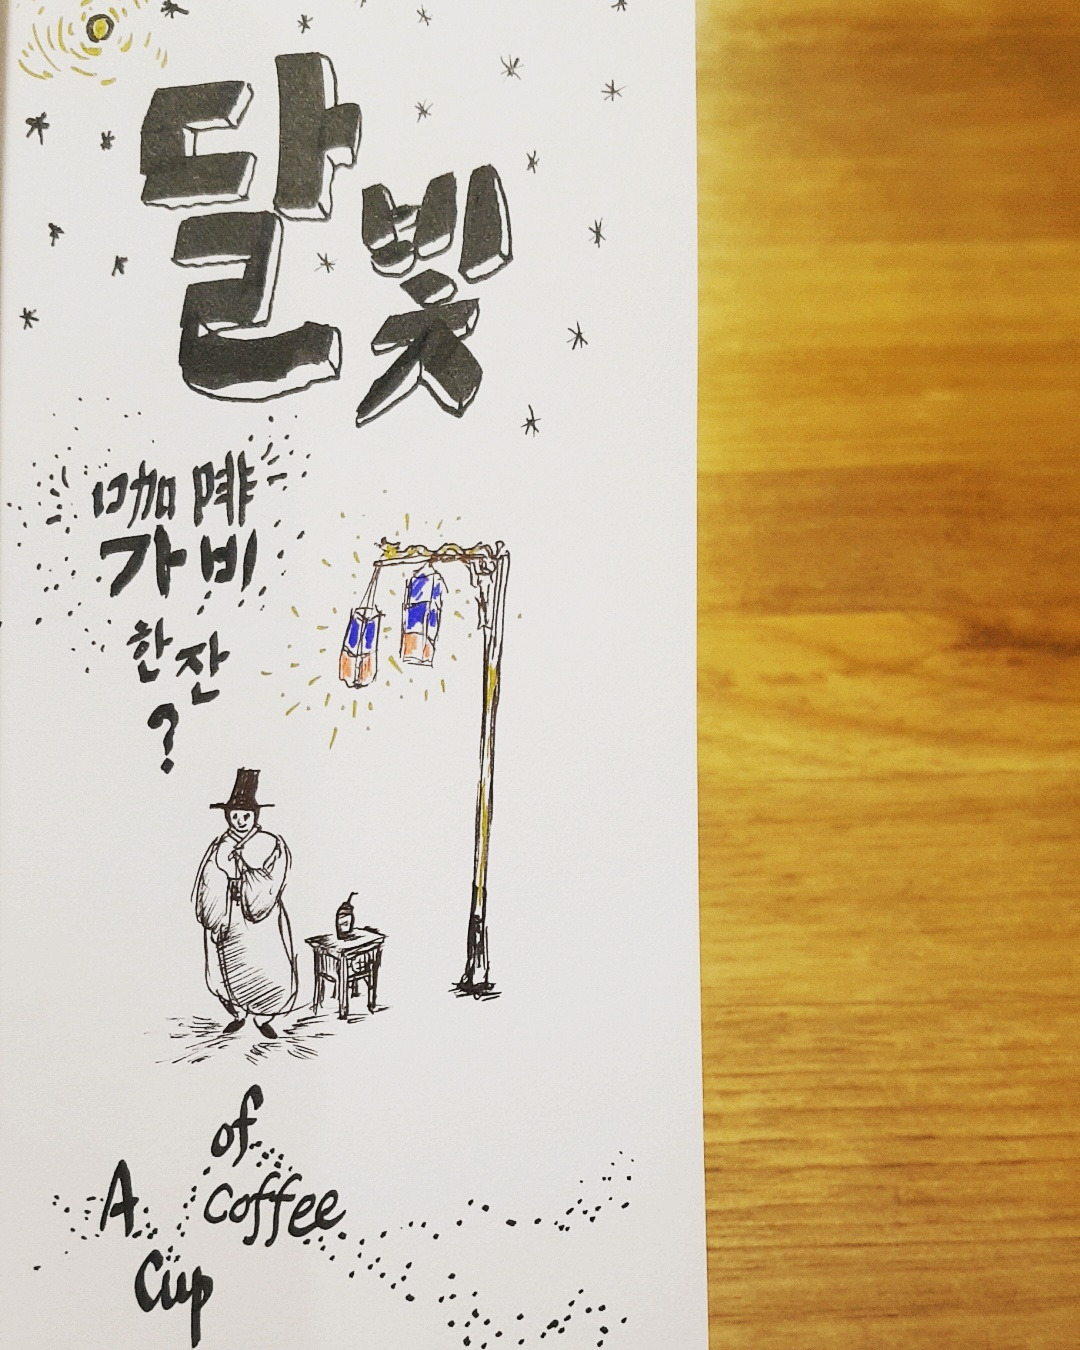 달빛
咖啡
가비
한잔
?
A
Cup
of
Coffee